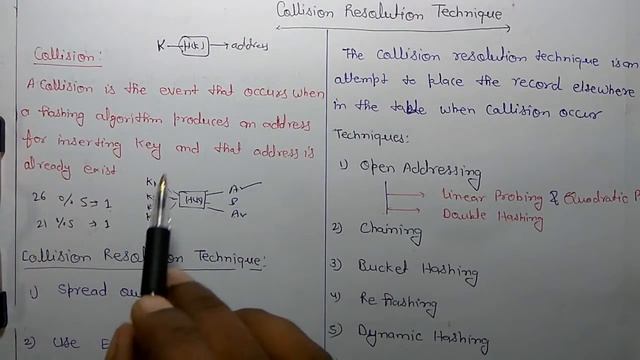 Collision Resolution Technique
K → H(K) → address
Collision:
A collision is the event that occurs when
a hashing algorithm produces an address
for inserting key and that address is
already exist
26 % 5 → 1
21 % 5 → 1
Collision Resolution Technique:
1) Spread
2) Use
The collision resolution technique is an
attempt to place the record elsewhere
in the table when collision occur
Techniques:
1) Open Addressing
Linear Probing & Quadratic
Double Hashing
2) Chaining
3) Bucket Hashing
4) Re Hashing
5) Dynamic Hashing